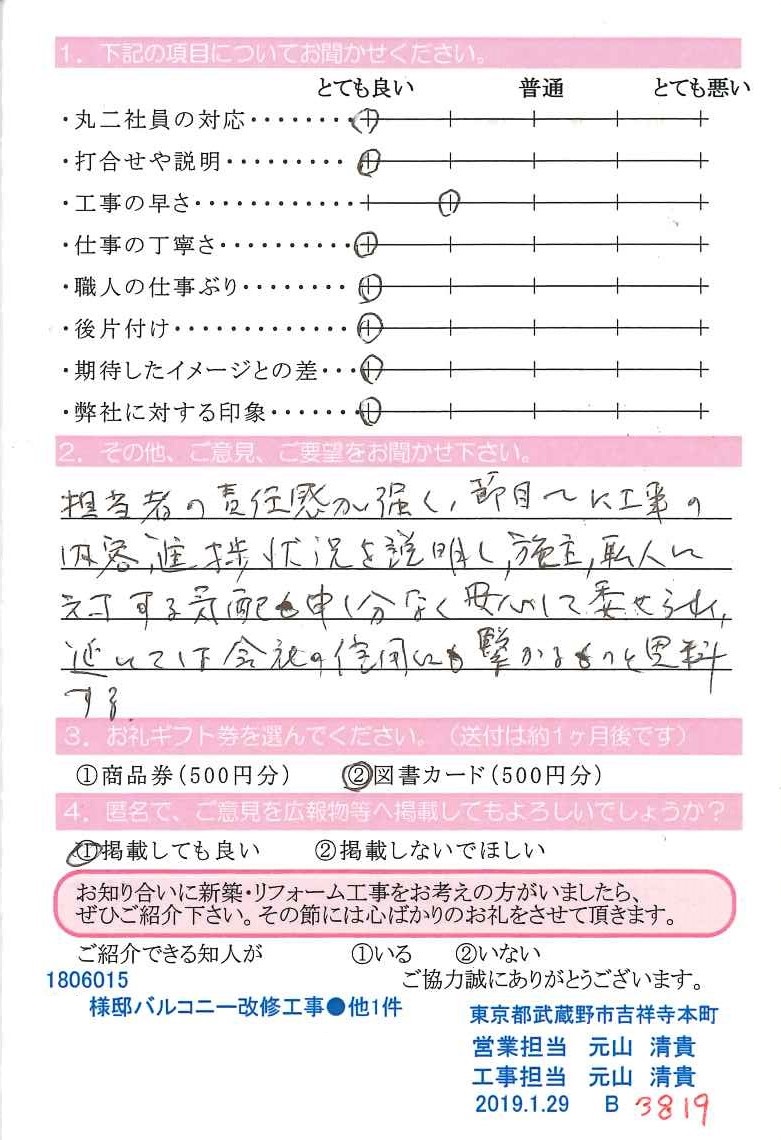 1. 下記の項目についてお聞かせください。
とても良い 普通 とても悪い
・丸二社員の対応・・・・・・・・
・打合せや説明・・・・・・・・・
・工事の早さ・・・・・・・・・・・
・仕事の丁寧さ・・・・・・・・・・
・職人の仕事ぶり・・・・・・・・
・後片付け・・・・・・・・・・・・・
・期待したイメージとの差・・・
・弊社に対する印象・・・・・・・
2. その他、ご意見、ご要望をお聞かせ下さい。
担当者の責任感が強く、節目〱に工事の
内容、進捗状況を説明し、施主、職人に
対する気配も申し分なく安心して委せられ、
延いては会社の信用にも繋がるものと思料
する。
3. お礼ギフト券を選んでください。(送付は約1ヶ月後です)
①商品券(500円分) ②図書カード(500円分)
4. 匿名で、ご意見を広報物等へ掲載してもよろしいでしょうか?
①掲載しても良い ②掲載しないでほしい
お知り合いに新築・リフォーム工事をお考えの方がいましたら、
ぜひご紹介下さい。その節には心ばかりのお礼をさせて頂きます。
ご紹介できる知人が ①いる ②いない
1806015 ご協力誠にありがとうございます。
様邸バルコニー改修工事●他1件
東京都武蔵野市吉祥寺本町
営業担当 元山 清貴
工事担当 元山 清貴
2019.1.29 B 3819